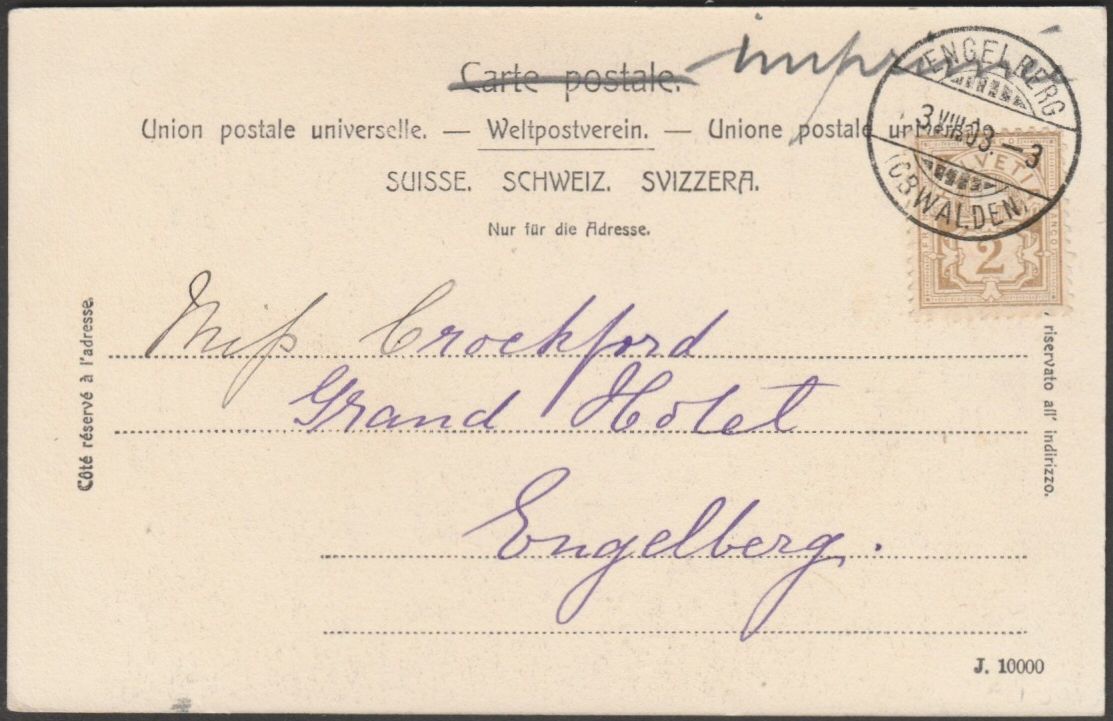 imprimé
Carte postale.
Union postale universelle. — Weltpostverein. — Unione postale
SUISSE. SCHWEIZ. SVIZZERA.
Nur für die Adresse.
ENGELBERG
3.VIII.03.–3
(OBWALDEN)
HELVETIA
FRANCO
2
Côté réservé à l'adresse.
riservato all' indirizzo.
Miss Crockford
Grand Hotel
Engelberg.
J. 10000